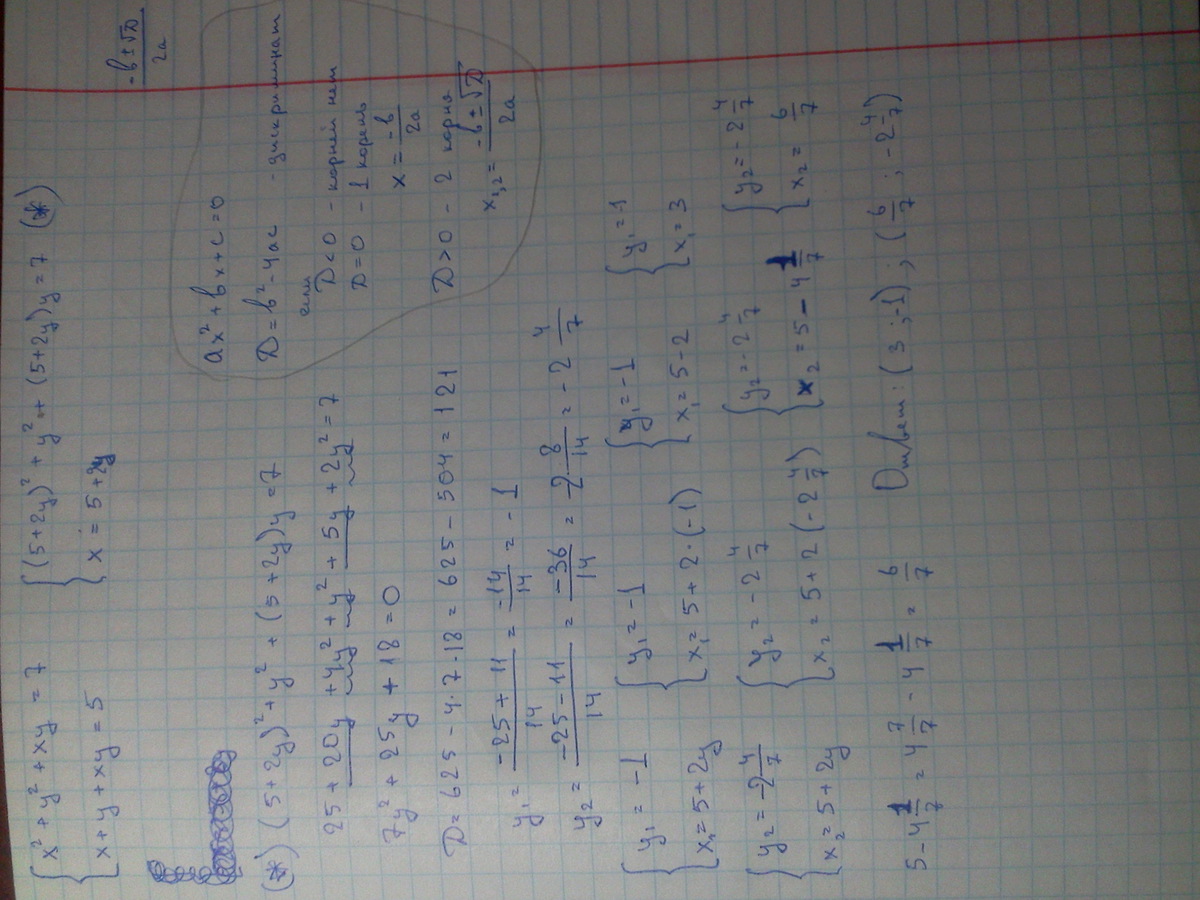 { x² + y² + xy = 7
{ x + y + xy = 5
{ (5+2y)² + y² + (5+2y)y = 7 (*)
{ x = 5+2y
-b±√D / 2a
(*) (5+2y)² + y² + (5+2y)y = 7
25 + 20y + 4y² + y² + 5y + 2y² = 7
7y² + 25y + 18 = 0
D = 625 - 4·7·18 = 625 - 504 = 121
y₁ = -25+11 / 14 = -14/14 = -1
y₂ = -25-11 / 14 = -36/14 = -2 8/14 = -2 4/7
ax² + bx + c = 0
D = b² - 4ac - дискриминант
если
D < 0 - корней нет
D = 0 - 1 корень
x = -b/2a
D > 0 - 2 корня
x₁,₂ = -b±√D / 2a
{ y₁ = -1 { y₁ = -1 { y₁ = -1 { y₁ = 1
{ x₁ = 5+2y { x₁ = 5+2·(-1) { x₁ = 5-2 { x₁ = 3
{ y₂ = -2 4/7 { y₂ = -2 4/7 { y₂ = -2 4/7 { y₂ = -2 4/7
{ x₂ = 5+2y { x₂ = 5+2(-2 4/7) { x₂ = 5 - 4 1/7 { x₂ = 6/7
5 - 4 1/7 = 4 7/7 - 4 1/7 = 6/7 Ответ: (3 ; -1) ; (6/7 ; -2 4/7)